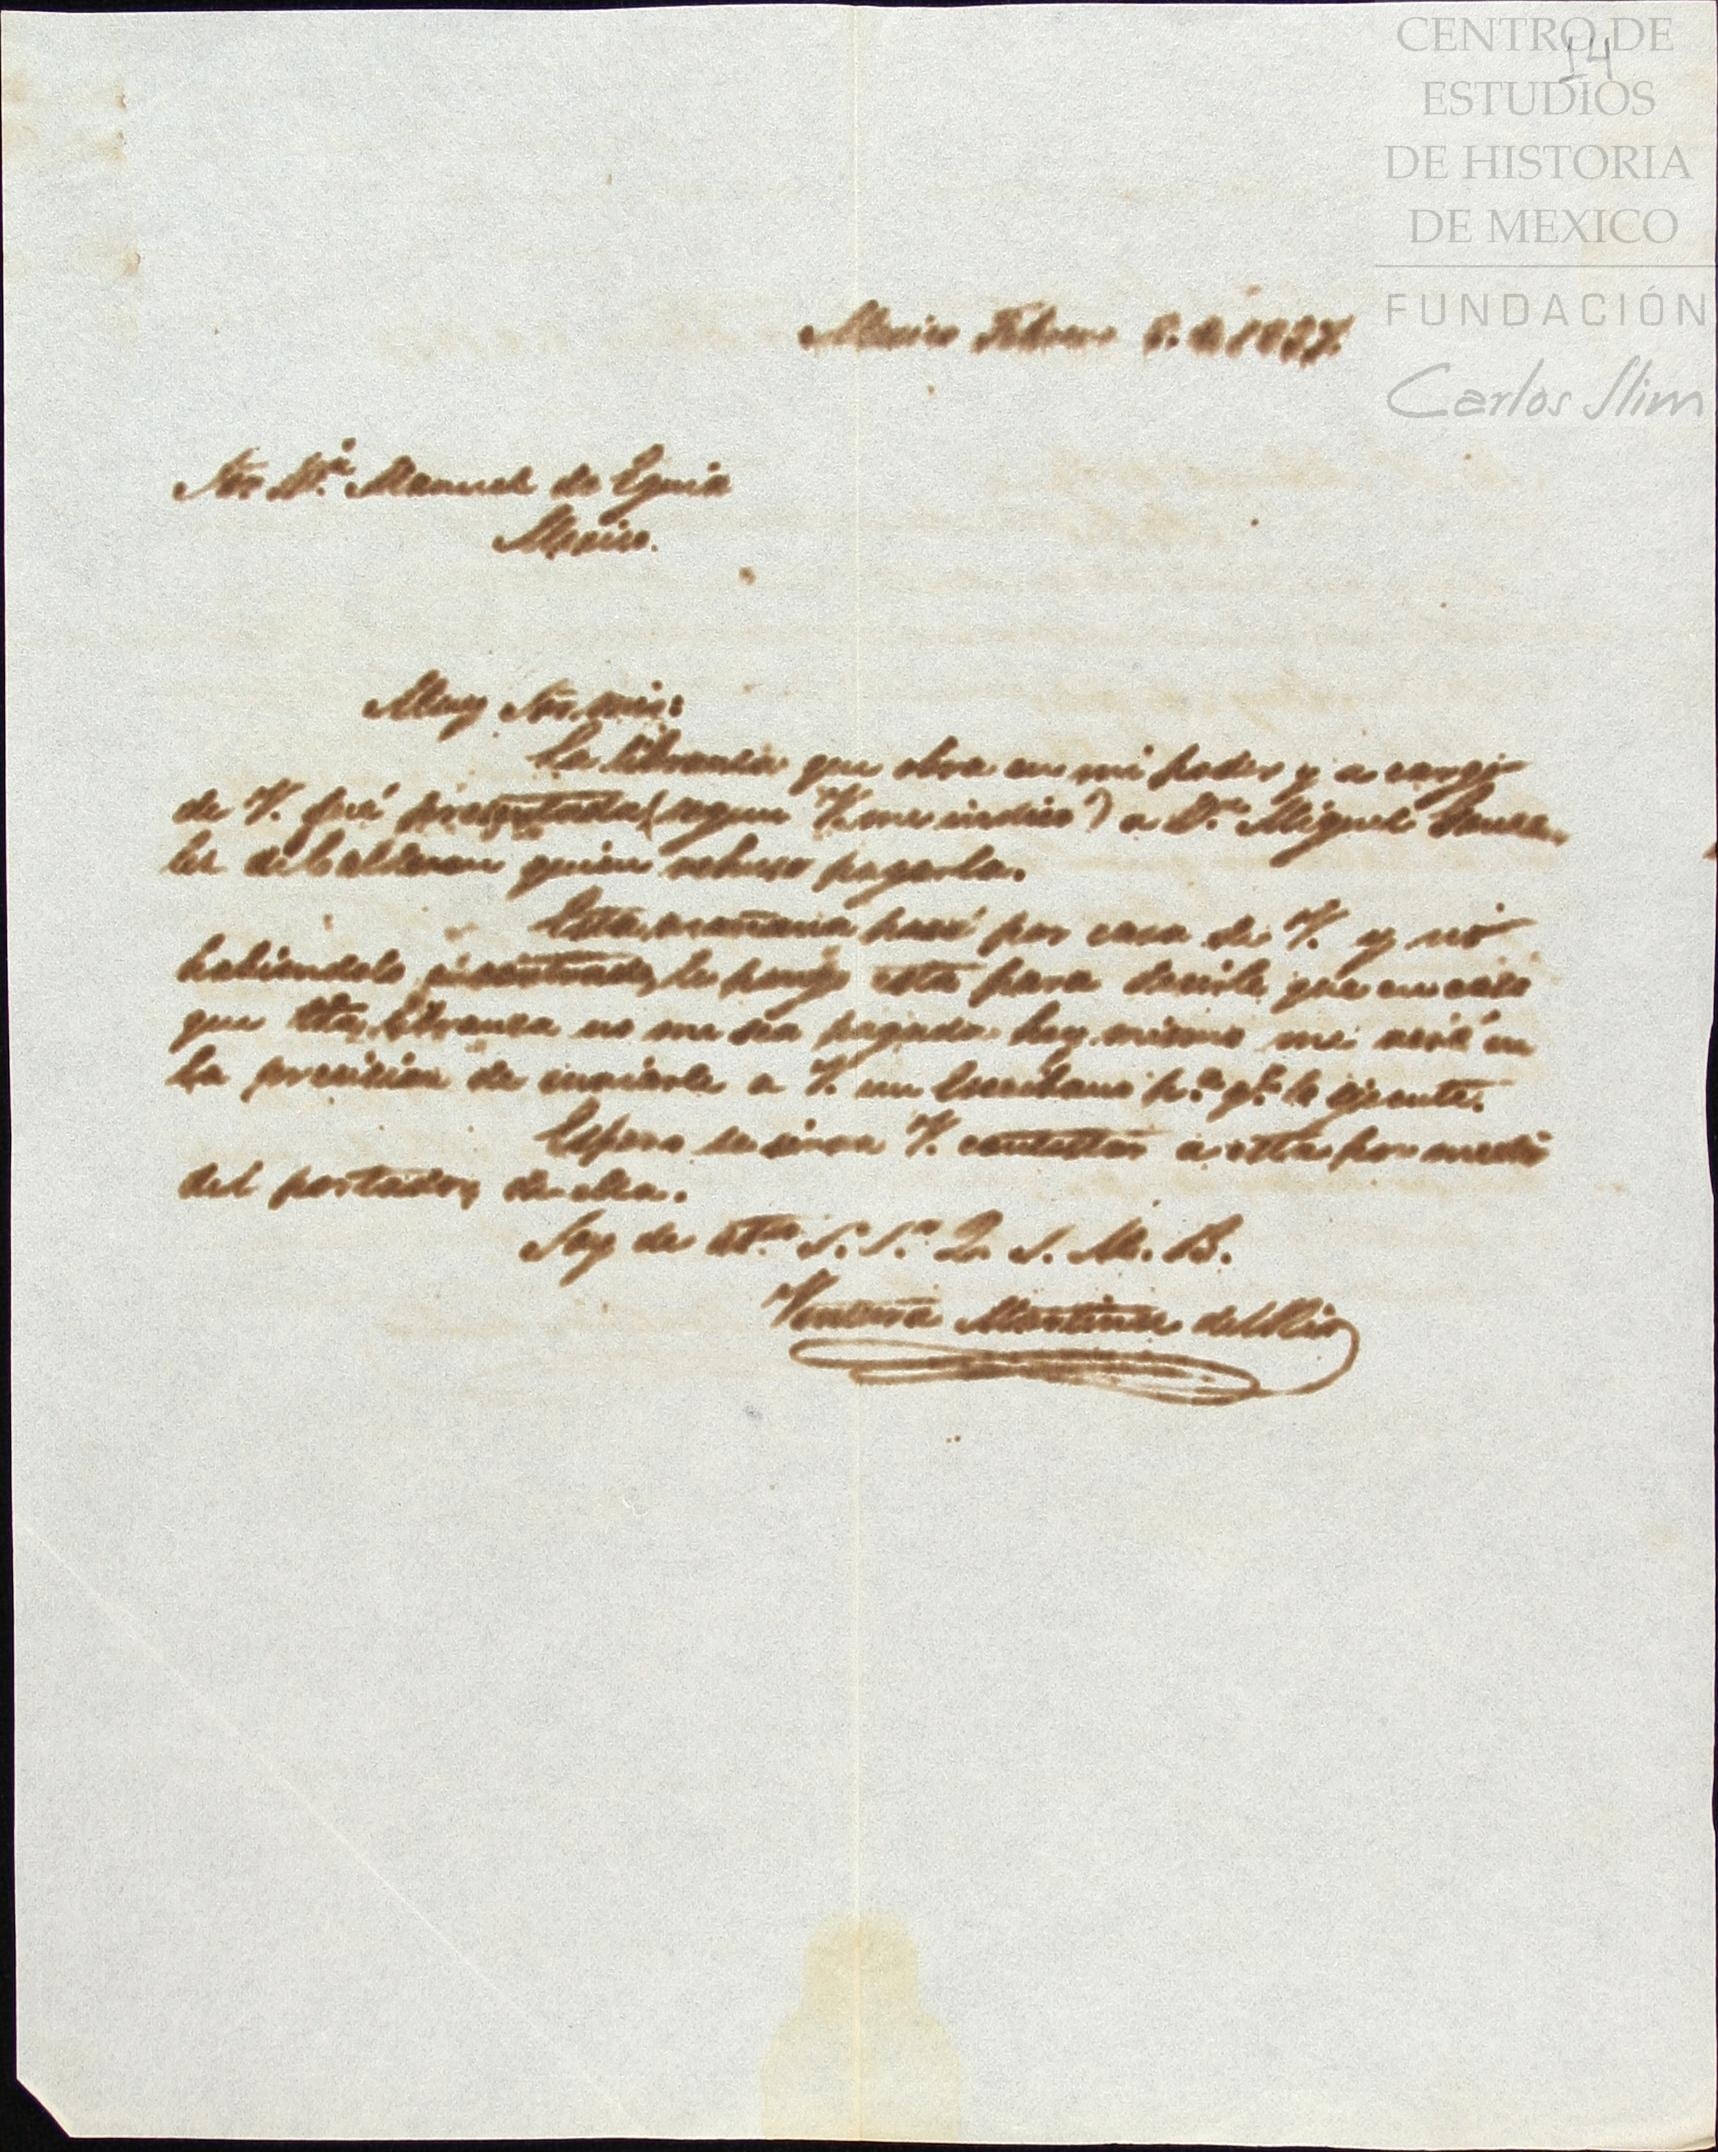 CENTRO DE
14
ESTUDIOS
DE HISTORIA
DE MEXICO
FUNDACIÓN
Carlos Slim
Mexico Febrero 8. de 1837.
Sor Dn. Manuel de Eguia
Mexico.
Muy Sor. mio:
La libranza que obra en mi poder y a cargo
de V. fué presentada (segun V. me indicó) a Dn. Miguel
de Calderon quien rehusó pagarla.
Esta mañana pasé por casa de V. y nó
habiendole encontrado, le pongo esta para decirle que en caso
que dha. libranza no me sea pagada hoy mismo me veré en
la precision de enviarle a V. un Escribano pa. qe. le ejecute.
Espero se sirva V. contestar a esta por medio
del portador de ella.
Soy de V. ato. S. Sr. Q. S. M. B.
Ventura Martinez del Rio